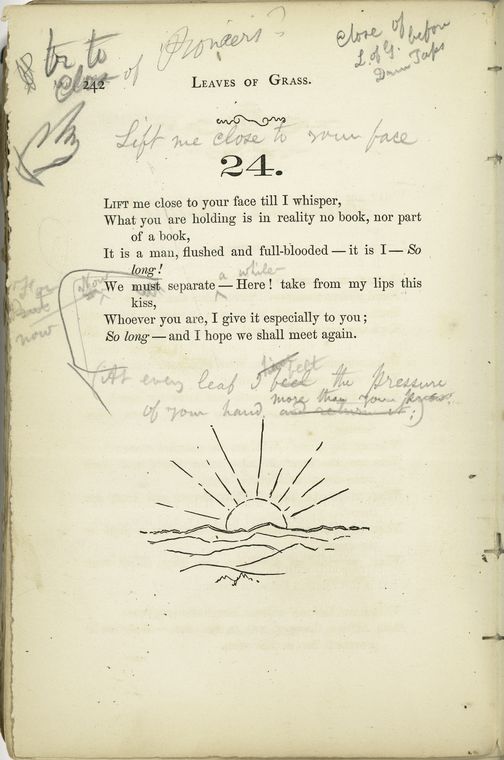 be to
close of Pioneers?
close of
L of G. before
Drum Taps
242
LEAVES OF GRASS.
Lift me close to your face
24.
LIFT me close to your face till I whisper,
What you are holding is in reality no book, nor part
of a book,
It is a man, flushed and full-blooded — it is I — So
long!
a while
We must separate — Here! take from my lips this
kiss,
now
Whoever you are, I give it especially to you;
So long — and I hope we shall meet again.
felt
(At every leaf I feel the pressure
more than your
of your hand, and return it.)